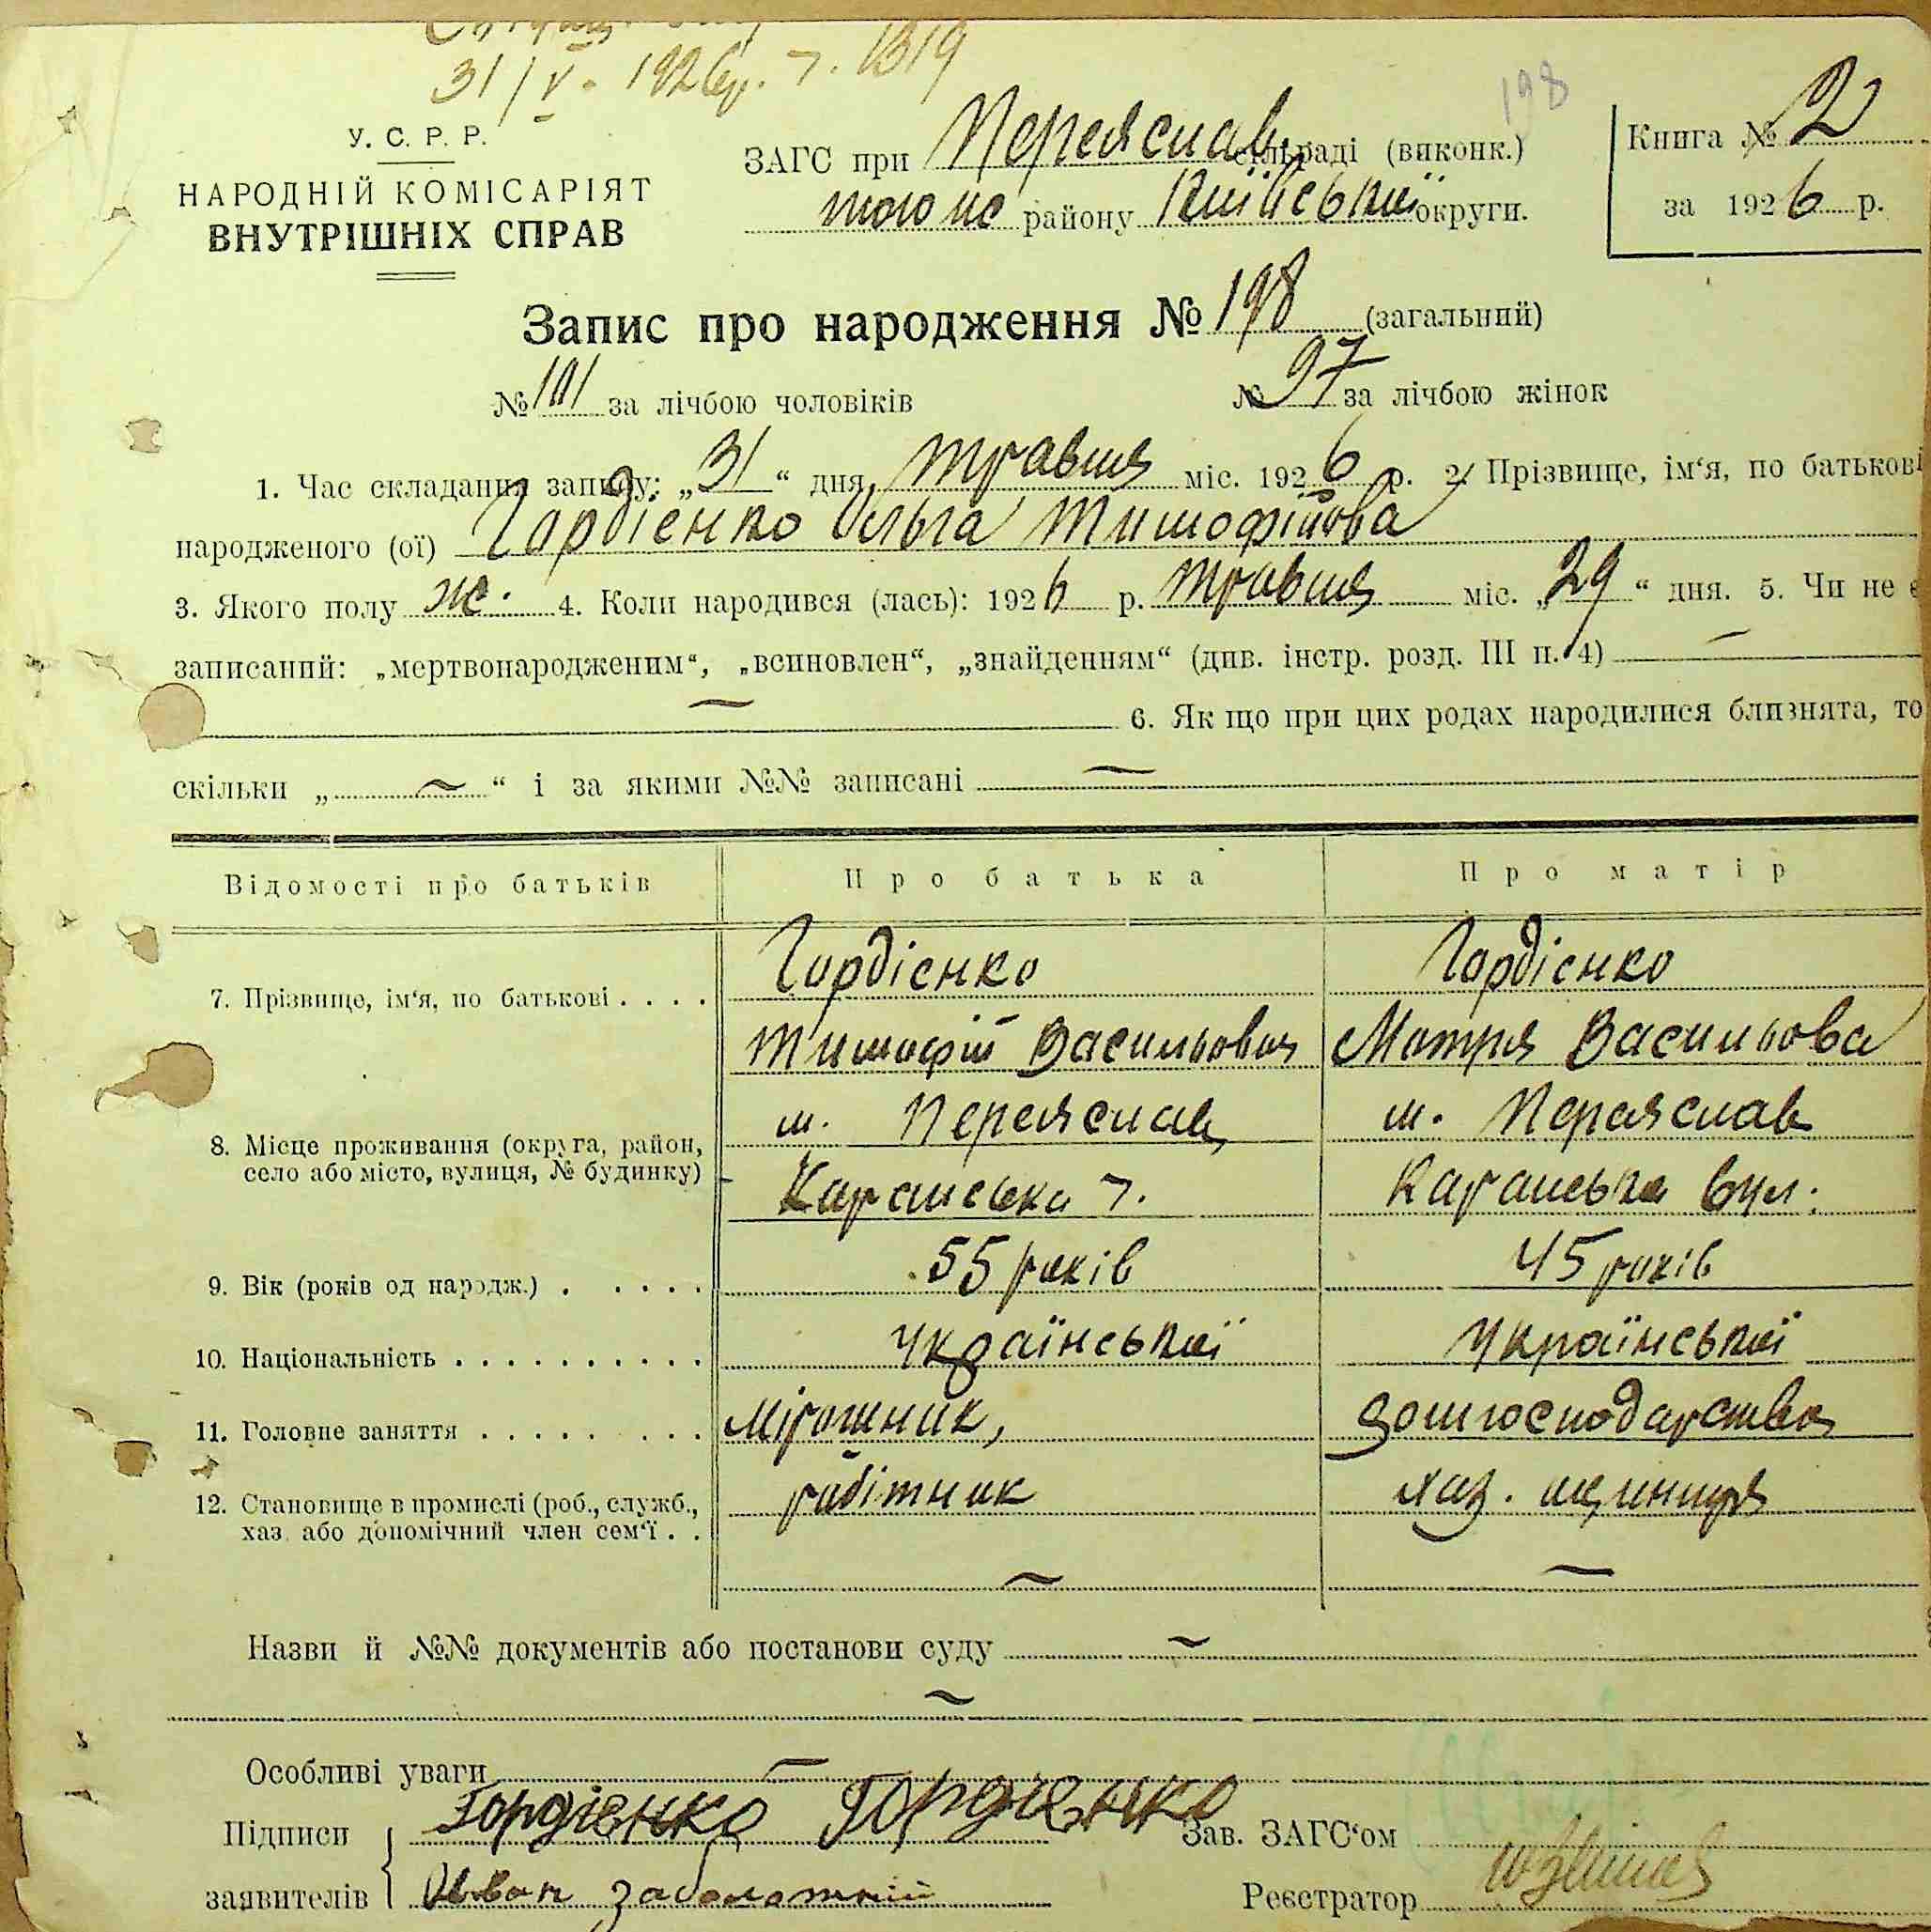 31/V - 1926р. 7. 1319
198
У. С. Р. Р.
НАРОДНІЙ КОМІСАРІЯТ
ВНУТРІШНІХ СПРАВ
ЗАГС при Переяслав. сільраді (виконк.)
того ж району Київської округи.
Книга № 2
за 1926 р.
Запис про народження № 198 (загальний)
№ 101 за лічбою чоловіків № 97 за лічбою жінок
1. Час складання запису: „31“ дня травня міс. 1926 р. 2. Прізвище, ім‘я, по батькові
народженого (ої) Гордієнко Ольга Тимофійова
3. Якого полу ж. 4. Коли народився (лась): 1926 р. травня міс. „29“ дня. 5. Чи не є
записаний: „мертвонародженим“, „всиновлен“, „знайденням“ (див. інстр. розд. III п. 4) —
— 6. Як що при цих родах народилися близнята, то
скільки „ — “ і за якими №№ записані —
Відомості про батьків Про батька Про матір
7. Прізвище, ім‘я, по батькові . . . . Гордієнко Гордієнко
Тимофій Васильович Мотря Васильова
8. Місце проживання (округа, район, м. Переяслав, м. Переяслав
село або місто, вулиця, № будинку) Каранська 7. Каранська вул.
9. Вік (років од народж.) . . . . . 55 років 45 років
10. Національність . . . . . . . . . . української української
11. Головне заняття . . . . . . . . мірошник, домгосподарства
12. Становище в промислі (роб., служб., робітник хаз.
хаз. або допомічний член сем‘ї . .
— —
Назви й №№ документів або постанови суду —
—
Особливі уваги —
Підписи Гордіенко Гордіенко Зав. ЗАГС‘ом
заявителів Иван Заболотний Реєстратор